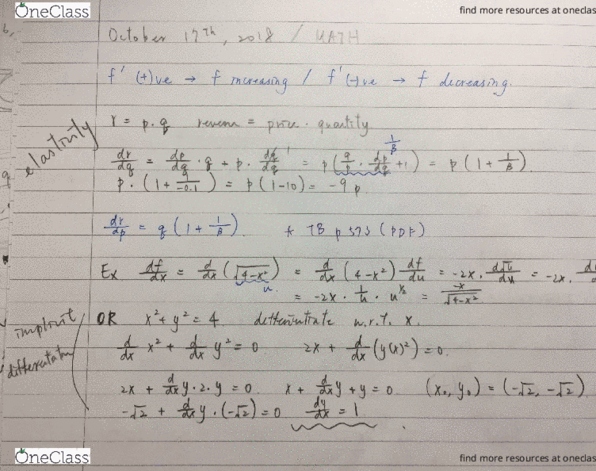 OneClass
find more resources at oneclas
October 17th, 2018 / MATH
f' (+)ve → f increasing / f' (-)ve → f decreasing.
elasticity
r = p·q revenue = price · quantity
dr/dq = dp/dq · q + p · dq/dq = p(q/p · dp/dq + 1) = p(1 + 1/β)
p·(1 + 1/-0.1) = p(1-10) = -9p
dr/dp = q(1 + 1/β). * TB p 573 (PDF)
Ex df/dx = d/dx (√4-x²) = d/dx (4-x²) df/du = -2x · d√u/du = -2x.
= -2x · 1/u · u^½ = -x/√4-x²
implicit differentiation
OR x² + y² = 4 differentiate w.r.t. x.
d/dx x² + d/dx y² = 0 2x + d/dx (y(x)²) = 0.
2x + d/dx y · 2 · y = 0 x + d/dx y + y = 0 (x₀, y₀) = (-√2, -√2)
-√2 + d/dx y · (-√2) = 0 dy/dx = 1
OneClass
find more resources at oneclas